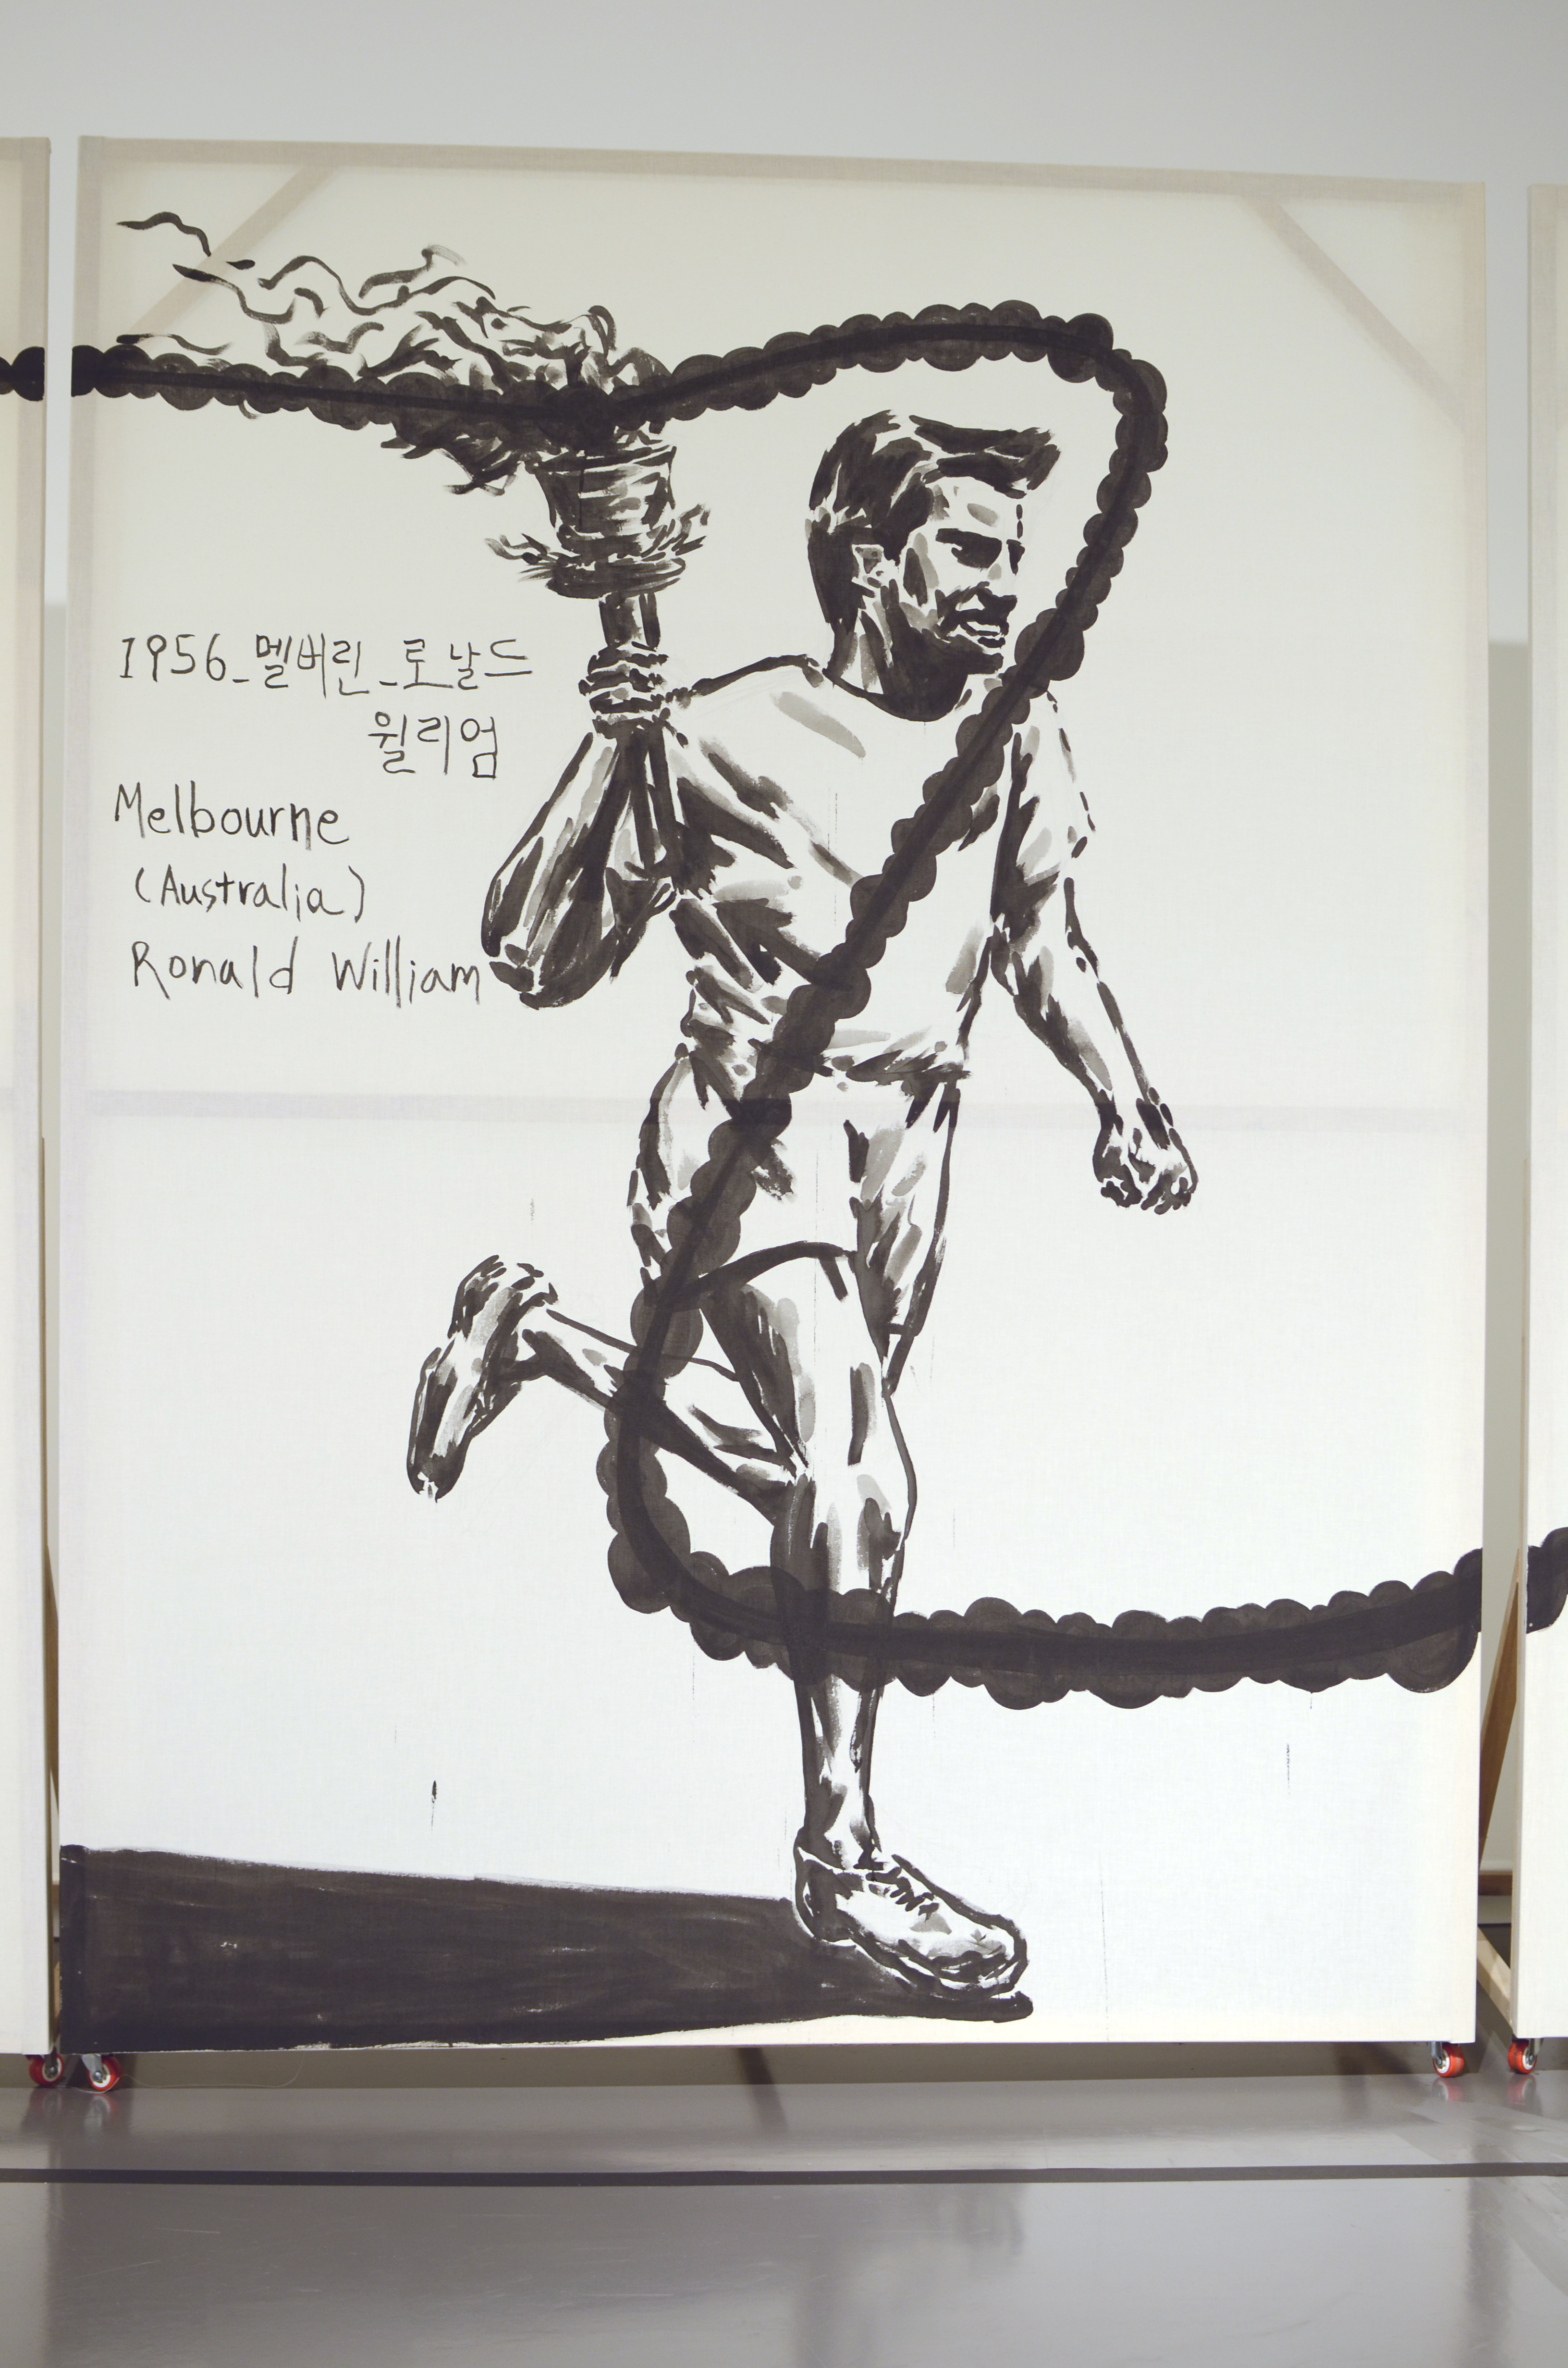 1956_멜버린_로날드
윌리엄
Melbourne
(Australia)
Ronald William